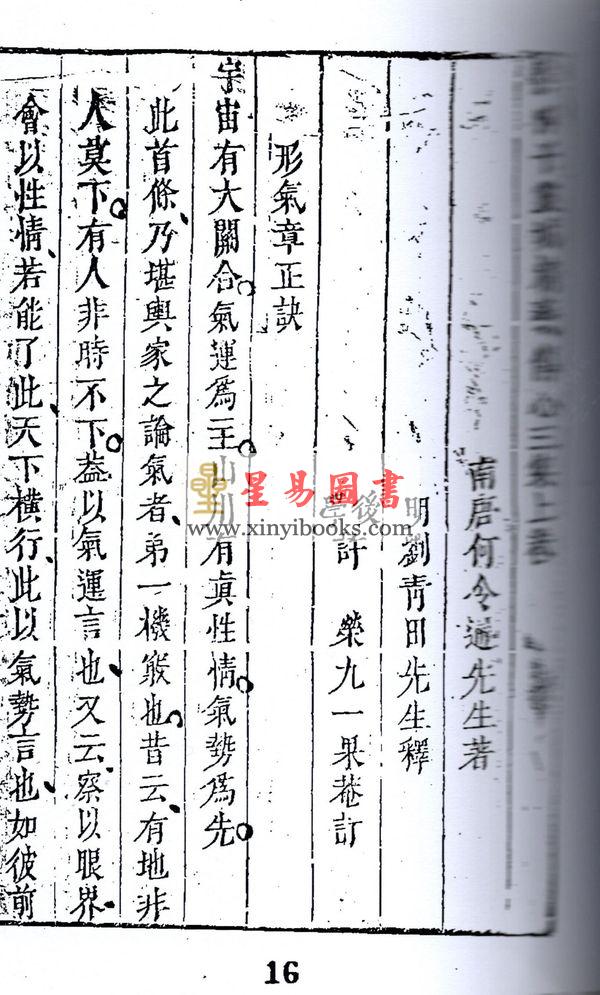 心三集上卷
南唐何令通先生著
明劉青田先生釋
後 計 榮九一果菴訂
形氣章正訣
宇宙有大關合氣運爲主山 有眞性情氣勢爲先
此首條乃堪輿家之論氣者第一機竅也昔云有地非
人莫下有人非時不下葢以氣運言也又云察以眼界
會以性情若能了此天下橫行此以氣勢言也如彼前
星易圖書
www.xinyibooks.com
16